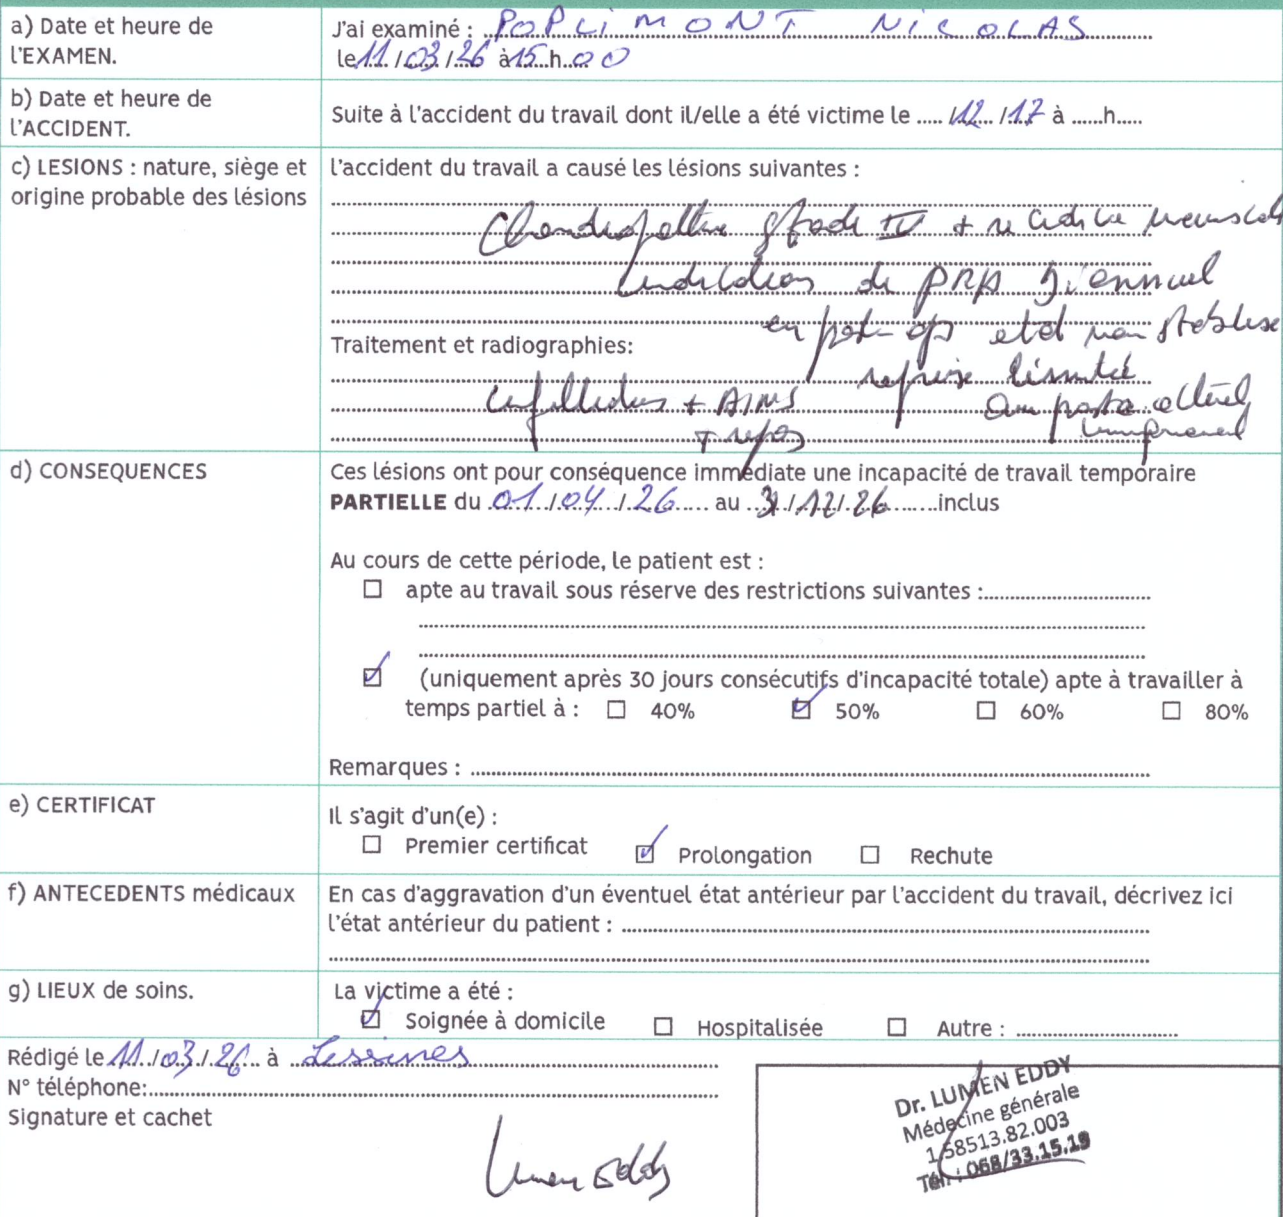 a) Date et heure de l'EXAMEN.
J'ai examiné : POPLIMONT NICOLAS
le 11/03/26 à 15 h 00
b) Date et heure de l'ACCIDENT.
Suite à l'accident du travail dont il/elle a été victime le ..... /12 /17 à ......h.....
c) LESIONS : nature, siège et origine probable des lésions
l'accident du travail a causé les lésions suivantes :
Chondropathie stade IV + récidive
indication de PRP
en post-op état non stabilisé
Traitement et radiographies:
reprise limitée
infiltrations + AINS
au poste actuel
+ repos
d) CONSEQUENCES
Ces lésions ont pour conséquence immédiate une incapacité de travail temporaire
PARTIELLE du 01/04/26 au 31/12/26 inclus
Au cours de cette période, le patient est :
☐ apte au travail sous réserve des restrictions suivantes :
☑ (uniquement après 30 jours consécutifs d'incapacité totale) apte à travailler à
temps partiel à : ☐ 40% ☑ 50% ☐ 60% ☐ 80%
Remarques :
e) CERTIFICAT
Il s'agit d'un(e) :
☐ Premier certificat ☑ Prolongation ☐ Rechute
f) ANTECEDENTS médicaux
En cas d'aggravation d'un éventuel état antérieur par l'accident du travail, décrivez ici
l'état antérieur du patient :
g) LIEUX de soins.
La victime a été :
☑ Soignée à domicile ☐ Hospitalisée ☐ Autre :
Rédigé le 11/03/26 à Lessines
N° téléphone:
Signature et cachet
Lumen Eddy
Dr. LUMEN EDDY
Médecine générale
1/58513.82.003
Tél : 068/33.15.19